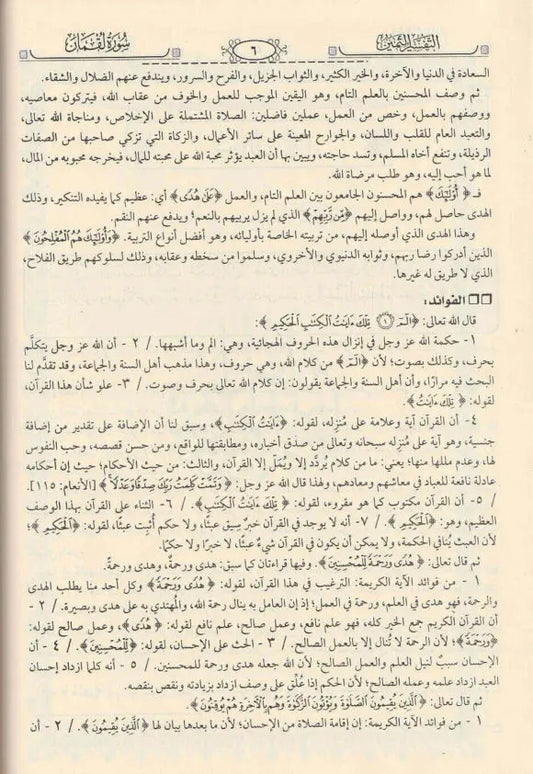 التفسير الثمين
٦
سورة لقمان
السعادة في الدنيا والآخرة، والخير الكثير، والثواب الجزيل، والفرح والسرور، ويندفع عنهم الضلال والشقاء.
ثم وصف المحسنين بالعلم التام، وهو اليقين الموجب للعمل والخوف من عقاب الله، فيتركون معاصيه،
ووصفهم بالعمل، وخص من العمل، عملين فاضلين: الصلاة المشتملة على الإخلاص، ومناجاة الله تعالى،
والتعبد العام للقلب واللسان، والجوارح المعينة على سائر الأعمال، والزكاة التي تزكي صاحبها من الصفات
الرذيلة، وتنفع أخاه المسلم، وتسد حاجته، ويبين بها أن العبد يؤثر محبة الله على محبته للمال، فيخرجه محبوبه من المال،
لما هو أحب إليه، وهو طلب مرضاة الله.
فـ ﴿أُوْلَٰٓئِكَ﴾ هم المحسنون الجامعون بين العلم التام، والعمل ﴿عَلَىٰ هُدًى﴾ أي: عظيم كما يفيده التنكير، وذلك
الهدى حاصل لهم، وواصل إليهم ﴿مِّن رَّبِّهِمْ﴾ الذي لم يزل يربيهم بالنعم؛ ويدفع عنهم النقم.
وهذا الهدى الذي أوصله إليهم، من تربيته الخاصة بأوليائه، وهو أفضل أنواع التربية. ﴿وَأُوْلَٰٓئِكَ هُمُ الْمُفْلِحُونَ﴾
الذين أدركوا رضا ربهم، وثوابه الدنيوي والأخروي، وسلموا من سخطه وعقابه، وذلك لسلوكهم طريق الفلاح،
الذي لا طريق له غيرها.
❑❑ الفوائد:
قال الله تعالى: ﴿الٓمٓ ۝١ تِلْكَ ءَايَٰتُ الْكِتَٰبِ الْحَكِيمِ﴾:
١ - حكمة الله عز وجل في إنزال هذه الحروف الهجائية، وهي: الم وما أشبهها. / ٢ - أن الله عز وجل يتكلَّم
بحرف، وكذلك بصوت؛ لأن ﴿الٓمٓ﴾ من كلام الله، وهي حروف، وهذا مذهب أهل السنة والجماعة، وقد تقدَّم لنا
البحث فيه مرارًا، وأن أهل السنة والجماعة يقولون: إن كلام الله تعالى بحرف وصوت. / ٣- علو شأن هذا القرآن،
لقوله: ﴿تِلْكَ ءَايَٰتُ﴾.
٤- أن القرآن آية وعلامة على مُنزِله، لقوله: ﴿ءَايَٰتُ الْكِتَٰبِ﴾، وسبق لنا أن الإضافة على تقدير من إضافة
جنسية، وهو آية على مُنزِله سبحانه وتعالى من صدق أخباره، ومطابقتها للواقع، ومن حسن قصصه، وحب النفوس
لها، وعدم مللها منها؛ يعني: ما من كلام يُردَّد إلا ويُمَلّ إلا القرآن، والثالث: من حيث الأحكام؛ حيث إن أحكامه
عادلة نافعة للعباد في معاشهم ومعادهم، ولهذا قال الله عز وجل: ﴿وَتَمَّتْ كَلِمَتُ رَبِّكَ صِدْقًا وَعَدْلًا﴾ [الأنعام: ١١٥].
/ ٥- أن القرآن مكتوب كما هو مقروء، لقوله: ﴿تِلْكَ ءَايَٰتُ الْكِتَٰبِ﴾. / ٦- الثناء على القرآن بهذا الوصف
العظيم، وهو: ﴿الْحَكِيمِ﴾. / ٧- أنه لا يوجد في القرآن خبرٌ سِيق عبثًا، ولا حكم أُثبِت عبثًا، لقوله: ﴿الْحَكِيمِ﴾؛
لأن العبث يُنافي الحكمة، ولا يمكن أن يكون في القرآن شيءٌ عبثًا، لا خبرًا ولا حكمًا.
ثم قال تعالى: ﴿هُدًى وَرَحْمَةً لِّلْمُحْسِنِينَ﴾. وفيها قراءتان كما سبق: هدى ورحمةٌ، وهدى ورحمةً.
١ - من فوائد الآية الكريمة: الترغيب في هذا القرآن، لقوله: ﴿هُدًى وَرَحْمَةً﴾ وكل أحد منا يطلب الهدى
والرحمة، فهو هدى في العلم، ورحمة في العمل؛ إذ إن العامل به ينال رحمة الله، والمُهتدي به على هدى وبصيرة. / ٢ -
أن القرآن الكريم جمع الخير كله، فهو علم نافع، وعمل صالح، علم نافع لقوله: ﴿هُدًى﴾، وعمل صالح لقوله:
﴿وَرَحْمَةً﴾؛ لأن الرحمة لا تُنال إلا بالعمل الصالح. / ٣ - الحث على الإحسان، لقوله: ﴿لِّلْمُحْسِنِينَ﴾. / ٤ - أن
الإحسان سببٌ لنيل العلم والعمل الصالح؛ لأن الله جعله هدى ورحمة للمحسنين. / ٥ - أنه كلما ازداد إحسان
العبد ازداد علمه وعمله الصالح؛ لأن الحكم إذا عُلّق على وصف ازداد بزيادته ونقص بنقصه.
ثم قال تعالى: ﴿الَّذِينَ يُقِيمُونَ الصَّلَوٰةَ وَيُؤْتُونَ الزَّكَوٰةَ وَهُم بِالْآخِرَةِ هُمْ يُوقِنُونَ﴾.
١ - من فوائد الآية الكريمة: إن إقامة الصلاة من الإحسان؛ لأن ما بعدها بيان لها ﴿الَّذِينَ يُقِيمُونَ﴾. / ٢ - أن